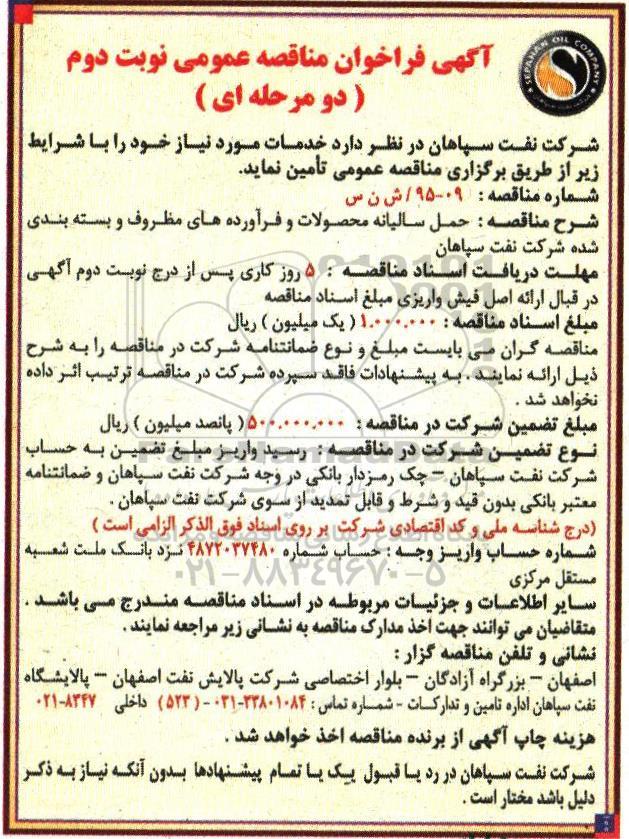 SEPAHAN OIL COMPANY
شرکت نفت سپاهان
آگهی فراخوان مناقصه عمومی نوبت دوم
( دو مرحله ای )
شرکت نفت سپاهان در نظر دارد خدمات مورد نیاز خود را با شرایط
زیر از طریق برگزاری مناقصه عمومی تأمین نماید.
شماره مناقصه : ۰۹-۹۵ / ش ن س
شرح مناقصه : حمل سالیانه محصولات و فرآورده های مظروف و بسته بندی
شده شرکت نفت سپاهان
مهلت دریافت اسناد مناقصه : ۵ روز کاری پس از درج نوبت دوم آگهی
در قبال ارائه اصل فیش واریزی مبلغ اسناد مناقصه
مبلغ اسناد مناقصه : ۱.۰۰۰.۰۰۰ ( یک میلیون ) ریال
مناقصه گران می بایست مبلغ و نوع ضمانتنامه شرکت در مناقصه را به شرح
ذیل ارائه نمایند . به پیشنهادات فاقد سپرده شرکت در مناقصه ترتیب اثر داده
نخواهد شد .
مبلغ تضمین شرکت در مناقصه : ۵۰۰.۰۰۰.۰۰۰ ( پانصد میلیون ) ریال
نوع تضمین شرکت در مناقصه : رسید واریز مبلغ تضمین به حساب
شرکت نفت سپاهان – چک رمزدار بانکی در وجه شرکت نفت سپاهان و ضمانتنامه
معتبر بانکی بدون قید و شرط و قابل تمدید از سوی شرکت نفت سپاهان .
(درج شناسه ملی و کد اقتصادی شرکت بر روی اسناد فوق الذکر الزامی است )
شماره حساب واریز وجه : حساب شماره ۴۸۷۲۰۳۷۴۸۰ نزد بانک ملت شعبه
مستقل مرکزی
۰۲۱-۸۸۳۴۹۶۷۰-۵
سایر اطلاعات و جزئیات مربوطه در اسناد مناقصه مندرج می باشد .
متقاضیان می توانند جهت اخذ مدارک مناقصه به نشانی زیر مراجعه نمایند .
نشانی و تلفن مناقصه گزار :
اصفهان – بزرگراه آزادگان – بلوار اختصاصی شرکت پالایش نفت اصفهان – پالایشگاه
نفت سپاهان اداره تامین و تدارکات - شماره تماس : ۳۳۸۰۱۰۸۴-۰۳۱ - ( ۵۲۳ ) داخلی ۸۳۴۷-۰۲۱
هزینه چاپ آگهی از برنده مناقصه اخذ خواهد شد .
شرکت نفت سپاهان در رد یا قبول یک یا تمام پیشنهادها بدون آنکه نیاز به ذکر
دلیل باشد مختار است .